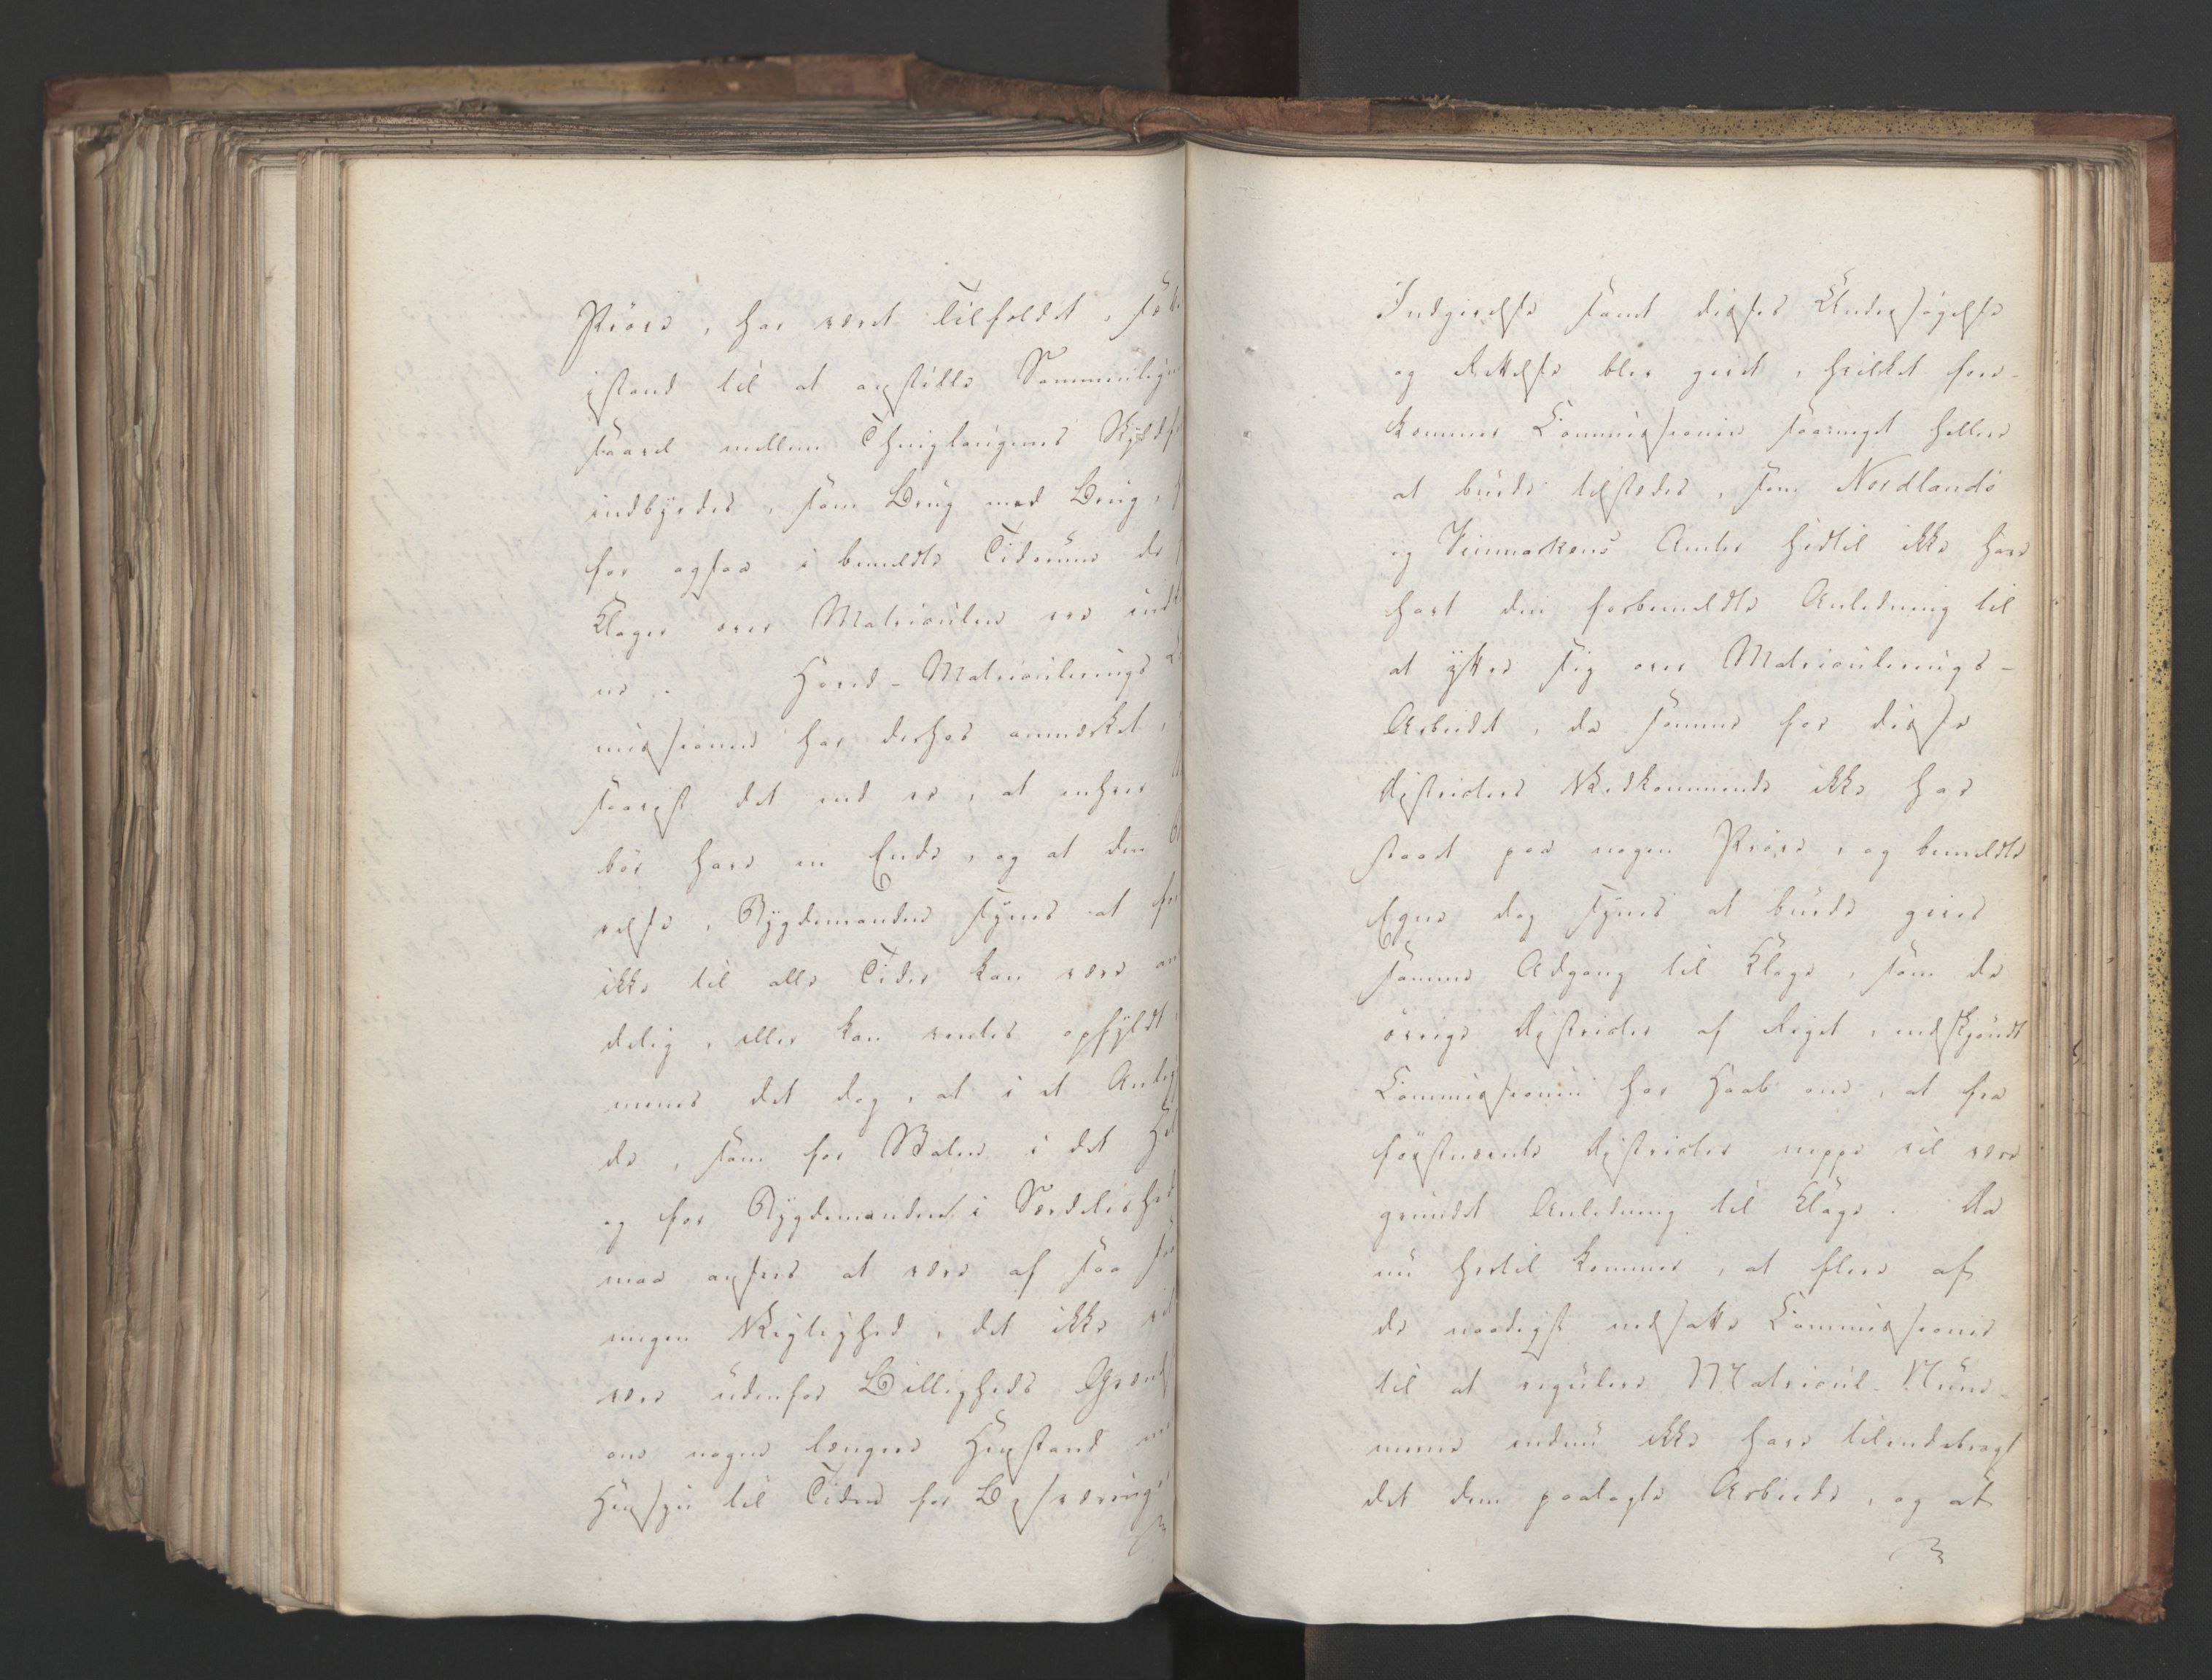 Prøve, har været Tilfældet, sæt
istand til at anstille Sammenlign
saavel mellem Thinglaugenes Skyld
indbyrdes, som Brug mod Brug,
for ogsaa i bemeldte Tidsrum de
Klager over Matriculen ere ind
ne. Hoved-Matriculerings
missionen har derhos anmærket,
saavist det end er, at enhver
bør have en Ende, og at den
relse, Bygdemanden synes at
ikke til alle Tider kan være an
delig, eller kan ventes opfyldt,
menes det dog, at i et Anlig
de, som for Staten i det Hel
og for Bygdemanden i Særdeleshed
maa ansees at være af saa
megen Vigtighed, det ikke vil
være udenfor Billigheds Grænds
om nogen længere Henstand
Hensyn til Tiden for Besværing
Indgivelse samt disses Undersøgelse
og Rettelse blev givet, hvilket fore-
kommer Commissionen saameget hellere
at burde tilstedes, som Nordlands
og Finmarkens Amter hidtil ikke have
havt den forbemeldte Anledning til
at yttre sig over Matriculerings-
Arbeidet, da samme for disse
Districters Vedkommende ikke har
staaet paa nogen Prøve, og bemeldte
Egne dog synes at burde gives
samme Adgang til Klage, som de
øvrige Districter af Riget, endskjøndt
Commissionen har Haab om, at fra
førstnævnte Districter neppe vil være
grundet Anledning til Klage. Da
nu hertil kommer, at flere af
de naadigst nedsatte Commissioner
til at regulere Matricul-Num-
merne endnu ikke have tilendebragt
det dem paalagte Arbeide, og at